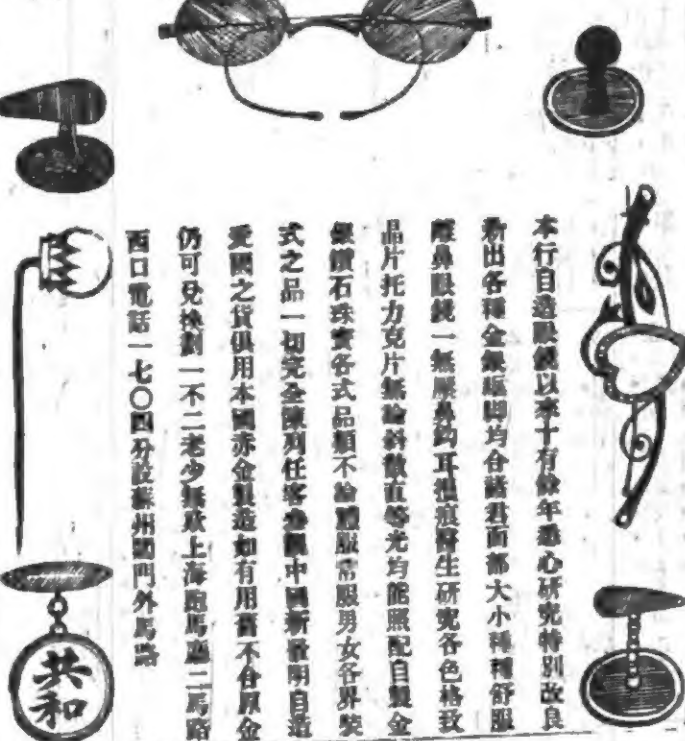 本行自造眼鏡以來十有餘年悉心研究特別改良
新出各種金銀框脚均合諸君面部大小種種舒服
壓鼻眼鏡一無壓鼻鈎耳攪痕醫生研究各色格致
晶片托力克片無論斜散直等光均能照配自製金
銀鑽石珠寶各式品類不論禮服常服男女各界裝
式之品一切完全陳列任客參觀中國新發明自造
愛國之貨俱用本國赤金製造如有用舊不合原金
仍可兌換劃一不二老少無欺上海跑馬廳二馬路
西口電話一七〇四分設蘇州閶門外馬路
共和